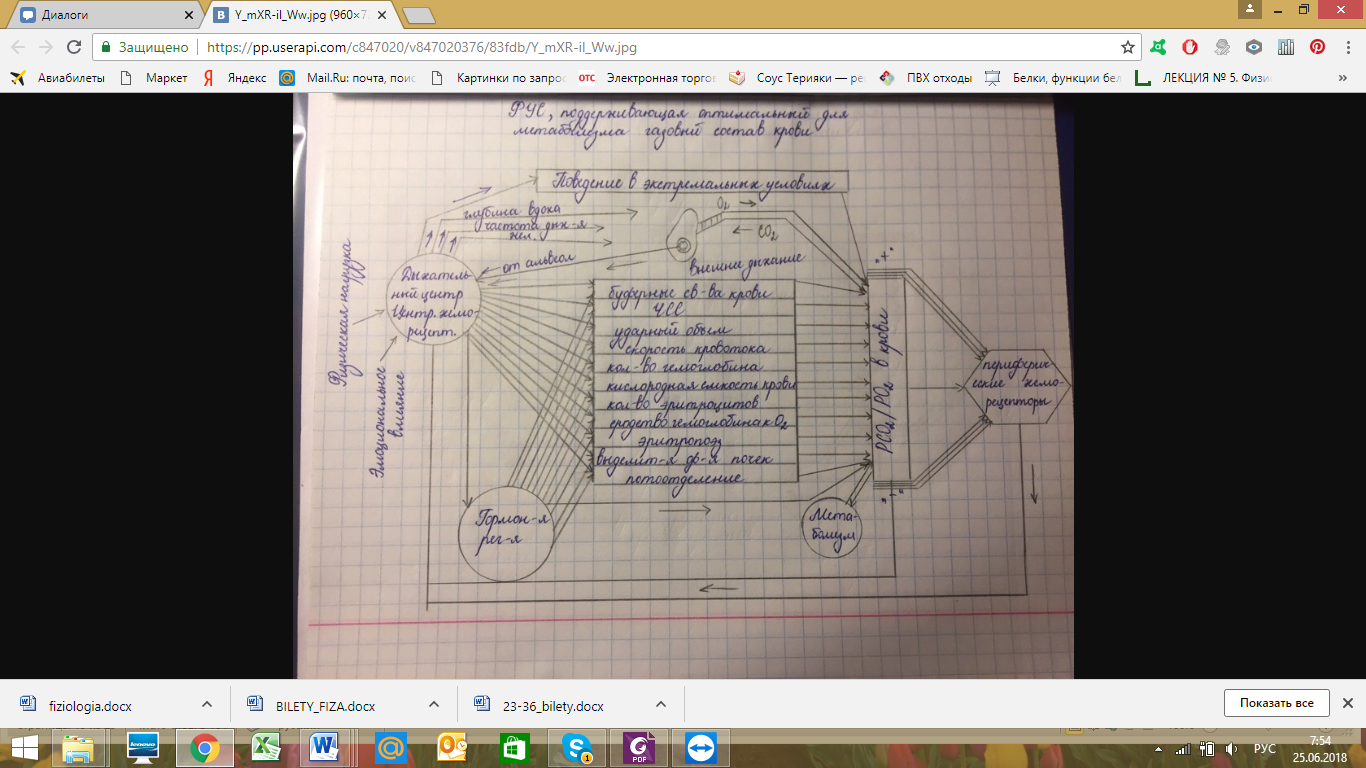 Диалоги
Y_mXR-iI_Ww.jpg (960×7
Защищено
https://pp.userapi.com/c847020/v847020376/83fdb/Y_mXR-iI_Ww.jpg
Авиабилеты
Маркет
Яндекс
Mail.Ru: почта, поис
Картинки по запрос
отс Электронная торгов
Соус Терияки — ре
ПВХ отходы
Белки, функции бел
ЛЕКЦИЯ № 5. Физи
»
ФУС, поддерживающая оптимальный для
метаболизма газовый состав крови
Поведение в экстремальных условиях
глубина вдоха
частота дых-я
O2
CO2
от альвеол
внешнее дыхание
Физическая нагрузка
Эмоциональное
влияние
Дыхатель-
ный центр
Центр. хемо-
рецепт.
буферные св-ва крови
ЧСС
ударный объем
скорость кровотока
кол-во гемоглобина
кислородная емкость крови
кол-во эритроцитов
сродство гемоглобина к O2
эритропоэз
выделит-я ф-я почек
потоотделение
"+"
PCO2/PO2 в крови
"-"
перифери-
ческие хемо-
рецепторы
Гормон-я
рег-я
Мета-
болизм
fiziologia.docx
BILETY_FIZA.docx
23-36_bilety.docx
Показать все
lenovo
PDF
1
РУС
7:54
25.06.2018